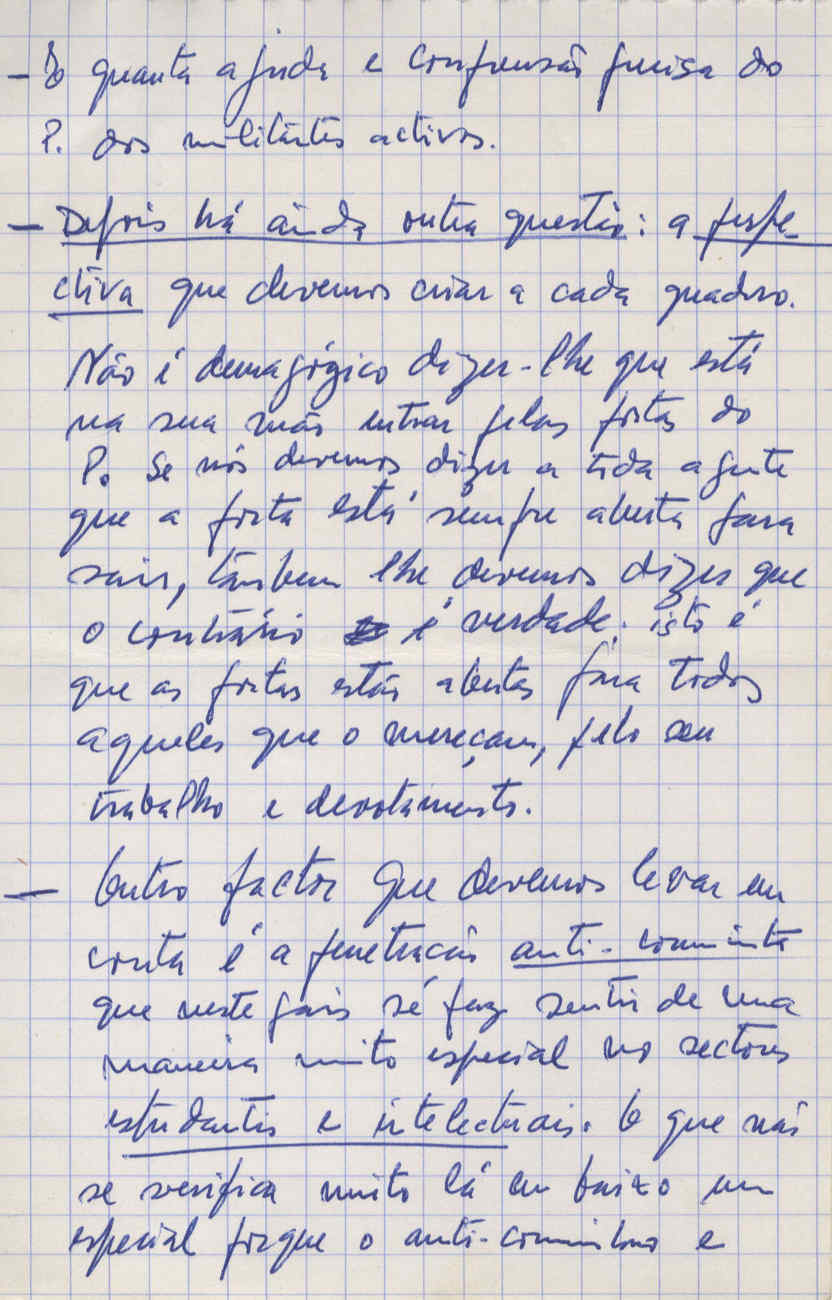 - quanta ajuda e compreensão precisa do
P. dos militantes activos.
- Depois há ainda outra questão: a perspe-
ctiva que devemos criar a cada quadro.
Não é demagógico dizer-lhe que está
na sua mão entrar pelas portas do
P. Se nós devemos dizer a toda a gente
que a porta está sempre aberta para
sair, também lhe devemos dizer que
o contrário é verdade: isto é
que as portas estão abertas para todos
aqueles que o mereçam, pelo seu
trabalho e devotamento.
- Outro factor que devemos levar em
conta é a penetração anti-comunista
que neste país se faz sentir de uma
maneira muito especial no sectores
estudantis e intelectuais. O que não
se verifica muito lá em baixo em
especial porque o anti-comunismo e